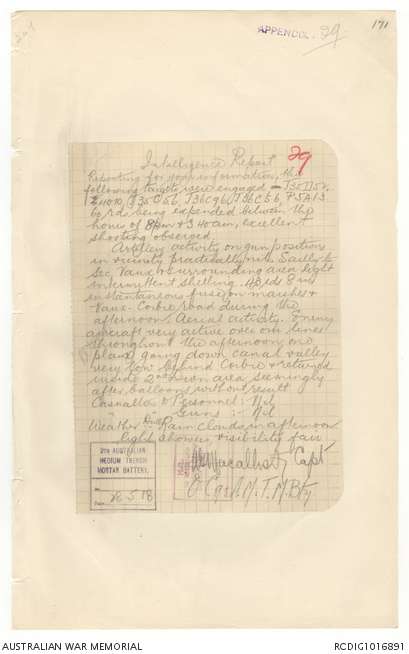 APPENDIX. 29
171
29
Intelligence Report
Reporting for your information, the
following targets were engaged -
J35C56, J36C96, J36C56,
rds being expended between the
hours of 8pm & 3.40am, excellent
shooting observed.
Artillery activity on gun positions
in vicinity practically nil. Sailly le
Sec, Vaux & surrounding area light
intermittent shelling. 40 rds
instantaneous fuse on marshes &
Vaux-Corbie road during the
afternoon. Aerial activity. Enemy
aircraft very active over our lines
throughout the afternoon, one
plane going down canal valley
very low behind Corbie & returned
inside 2nd area seemingly
after balloons without result
Casualties to Personnel: Nil
" " Guns :- Nil
Weather Dull Rain clouds in afternoon
light showers, visibility fair
Capt
O.C. M.T.M. Bty
AUSTRALIAN
MEDIUM TRENCH
MORTAR BATTERY.
No.
Date 26.5.18
AUSTRALIAN WAR MEMORIAL
RCDIG1016891